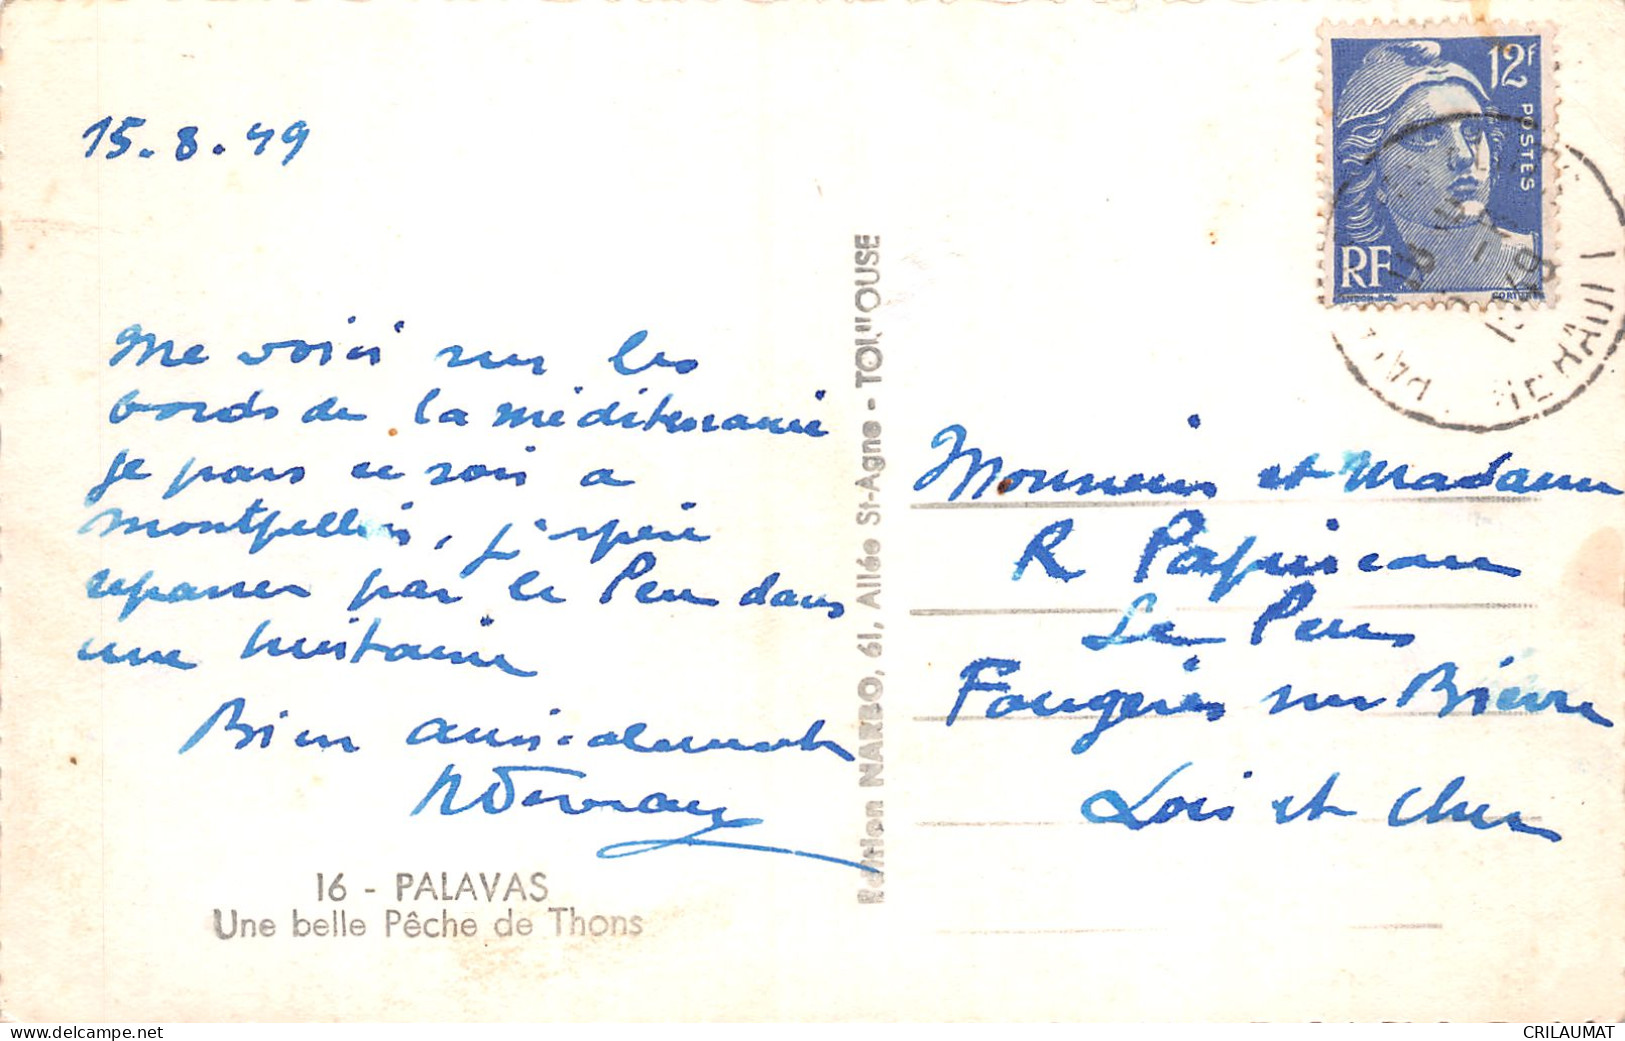 15.8.49
Me voici sur les
bords de la méditerranée
je pars ce soir a
montpellier, j'espère
repasser par le Peu dans
une huitaine
Bien amicalement
16 - PALAVAS
Une belle Pêche de Thons
Edition NARBO, 61, Allée St-Agne - TOULOUSE
12f
POSTES
RF
HERAULT
Monsieur et Madame
R Papineau
Le Peu
Fougères sur Bièvre
Loir et Cher
CRILAUMAT